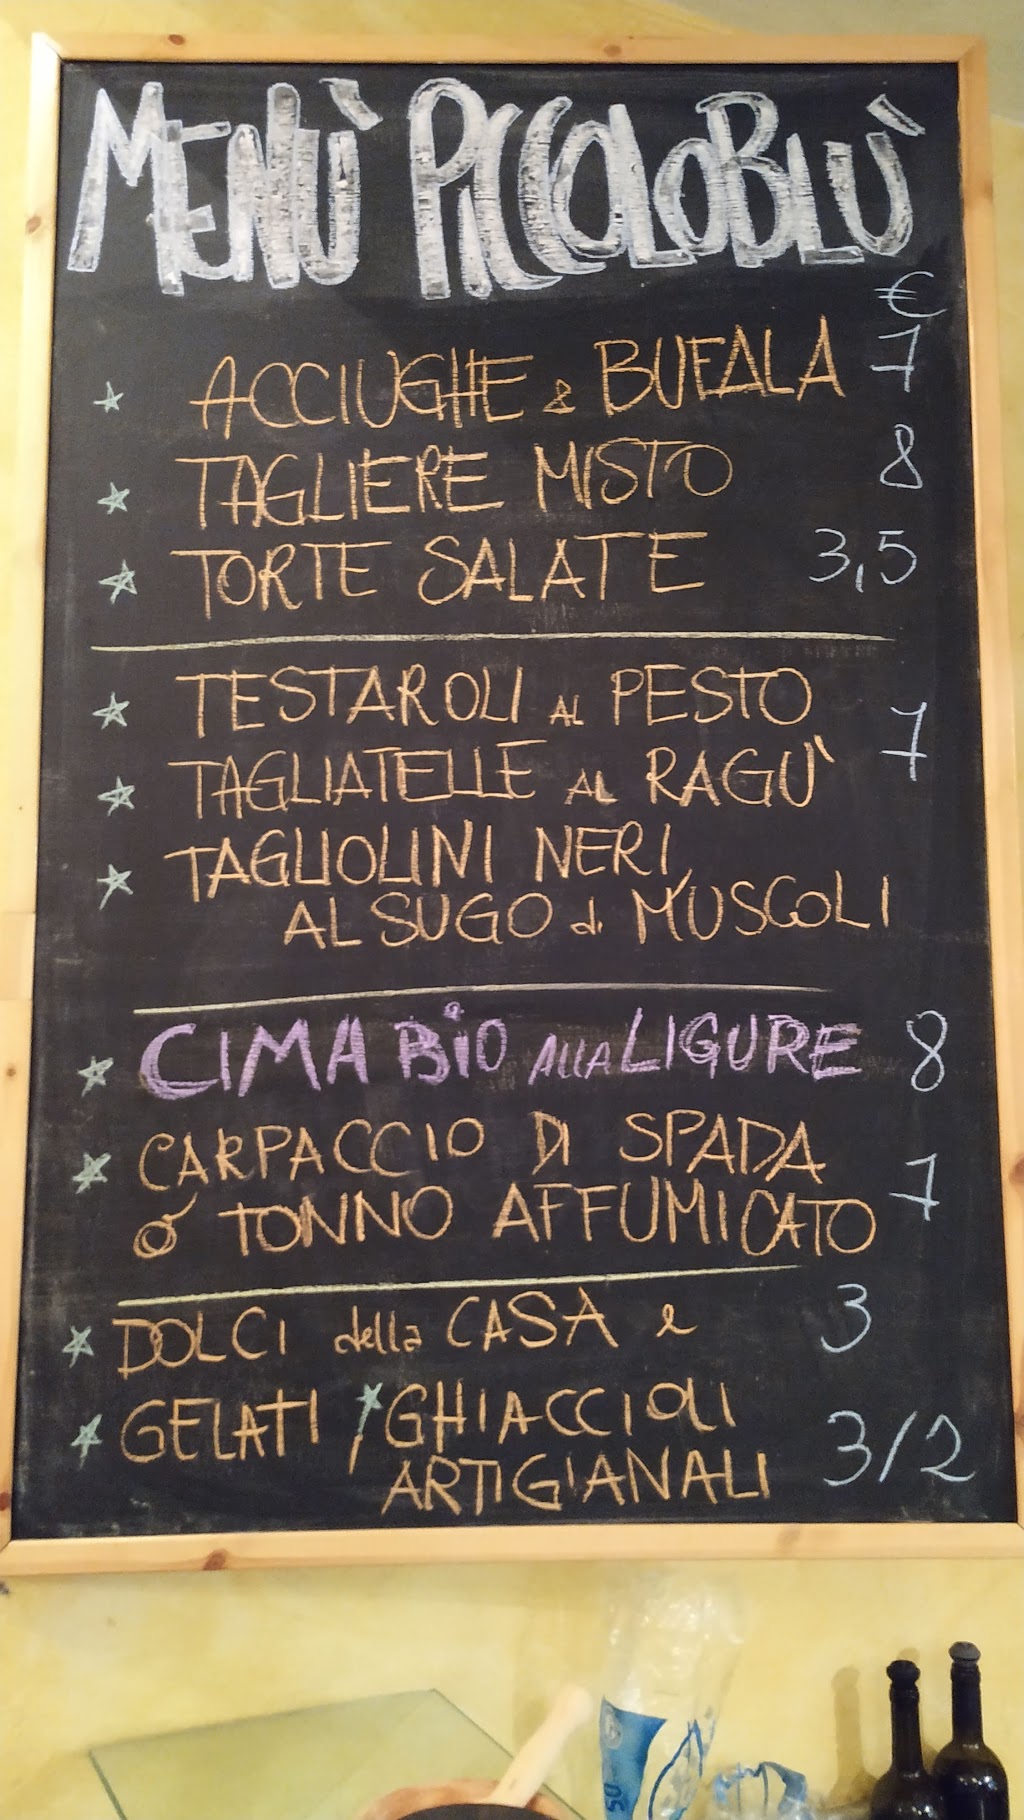 MENÙ PICCOLOBLÙ
€
ACCIUGHE & BUFALA 7
TAGLIERE MISTO 8
TORTE SALATE 3,5
TESTAROLI AL PESTO 7
TAGLIATELLE AL RAGU'
TAGLIOLINI NERI
AL SUGO di MUSCOLI
CIMA BiO ALLA LIGURE 8
CARPACCIO DI SPADA 7
o TONNO AFFUMICATO
DOLCI della CASA e 3
GELATI / GHIACCIOLI 3/2
ARTIGIANALI